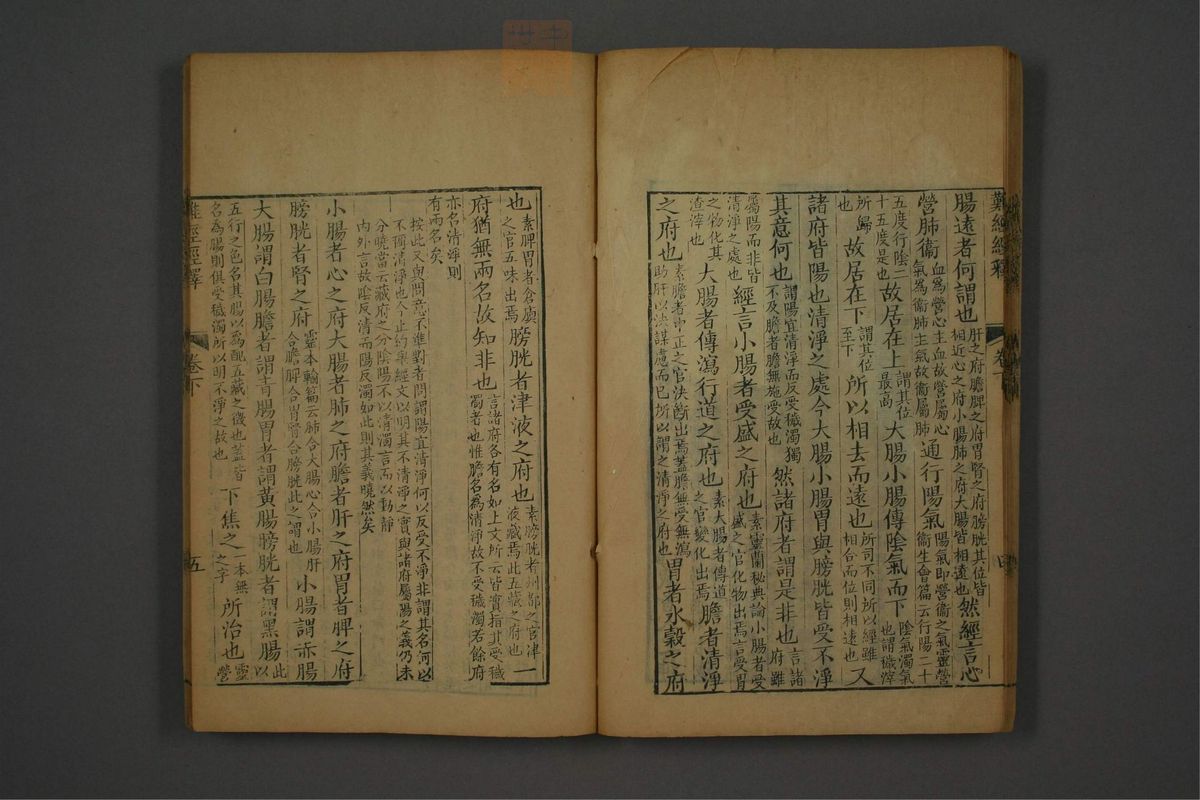 難經經釋
卷下
四
腸遠者何謂也 肝之府膽脾之府胃腎之府膀胱其位皆相近心之府小腸肺之府大腸皆相遠也 然經言心
營肺衞 血為營心主血故營屬心氣為衞肺主氣故衞屬肺 通行陽氣 陽氣即營衞之氣靈營衞生會篇云行陽二十
五度行陰二十五度是也 故居在上 謂其位最高 大腸小腸傳陰氣而下 陰氣濁氣也謂穢滓
所歸也 故居在下 謂其位至下 所以相去而遠也 所司不同所以經雖相合而位則相遠也 又
諸府皆陽也清淨之處今大腸小腸胃與膀胱皆受不淨
其意何也 謂陽宜清淨而反受穢濁獨不及膽者膽無施受故也 然諸府者謂是非也 言諸府雖
屬陽而非皆清淨之處也 經言小腸者受盛之府也 素靈蘭秘典論小腸者受盛之官化物出焉言受胃
之物化其渣滓也 大腸者傳瀉行道之府也 素大腸者傳道之官變化出焉 膽者清淨
之府也 素膽者中正之官決斷出焉蓋膽無受無瀉助肝以決謀慮而已所以謂之清淨之府也 胃者水穀之府
也 素脾胃者倉廩之官五味出焉 膀胱者津液之府也 素膀胱者州都之官津液藏焉此五藏之府也 一
府猶無兩名故知非也 言諸府各有名如上文所云皆實指其受穢濁者也惟膽名為清淨故不受穢濁若餘府
亦名清淨則有兩名矣
按此又與問意不準對者問謂陽宜清淨何以反受不淨非謂其名何以
不獨清淨也今止約舉經文以明其不清淨之實與諸府屬陽之義仍未
分曉當云藏府之分陰陽不以清濁言而以動靜
內外言故陰反清而陽反濁如此則其義曉然矣
小腸者心之府大腸者肺之府膽者肝之府胃者脾之府
膀胱者腎之府 靈本輸篇云肺合大腸心合小腸肝合膽脾合胃腎合膀胱此之謂也 小腸謂赤腸
大腸謂白腸膽者謂青腸胃者謂黃腸膀胱者謂黑腸 此以
五行之色名其腸以為配五藏之徵也蓋皆名為腸則俱受穢濁所以明不淨之故也 下焦之 一本無之字 所治也 靈營
難經經釋
卷下
五